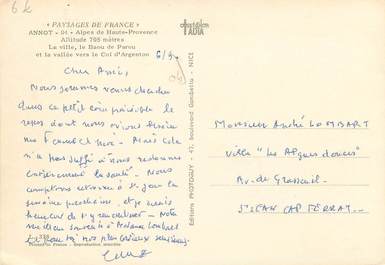 6 €
« PAYSAGES DE FRANCE »
ANNOT - 04 - Alpes de Haute-Provence
Altitude 705 mètres
La ville, le Baou de Parou
et la vallée vers le Col d'Argenton
ADIA
Cher Ami,
Nous sommes venus chercher
dans ce petit coin privilégié le
repos dont nous avions besoin
ma femme et moi. Mais cela
n'a pas suffi à nous redonner
entièrement la santé. Nous
comptons retourner à St Jean la
semaine prochaine et je serais
heureux de t'y rencontrer. Notre
meilleur souvenir à Madame Lombart
et pour toi nos plus
Editions PHOTOGUY - 47, Boulevard Gambetta - NICE
Monsieur André LOMBART
Villa "Les Algues douces"
Av. de Grasseuil.
ST JEAN CAP FERRAT
Printed in France - Reproduction interdite